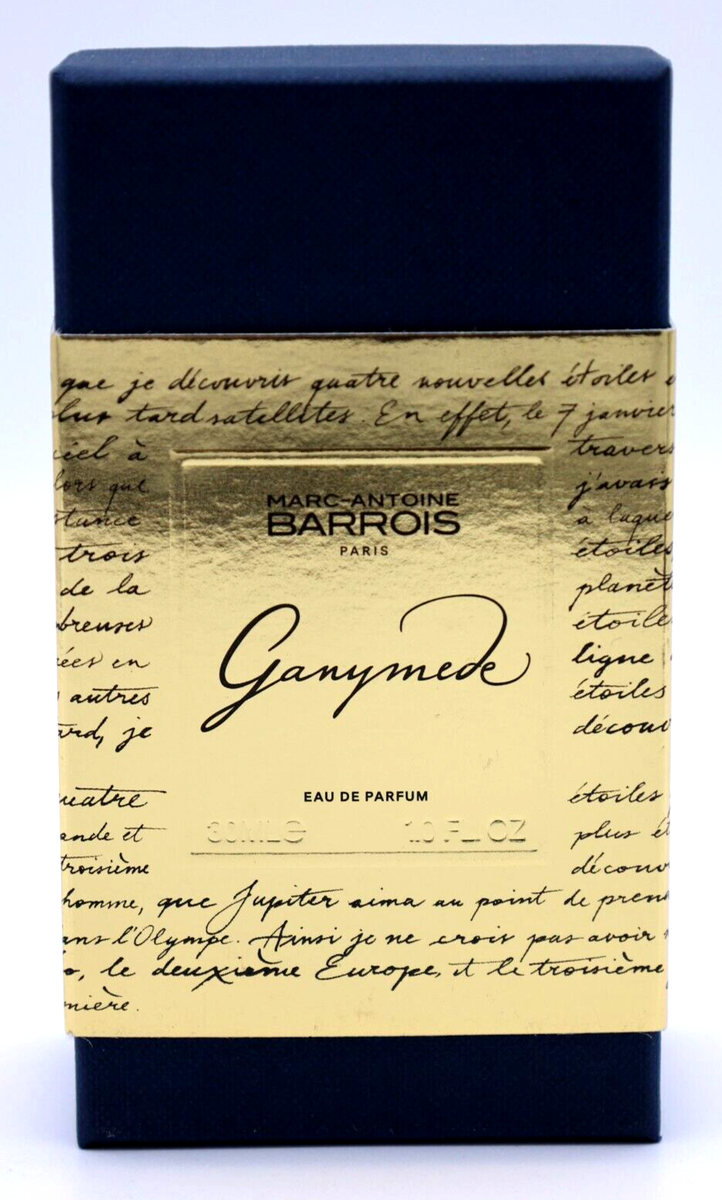 que je découvris quatre nouvelles étoiles
plus tard satellites. En effet, le 7 janvier
ciel à travers
lors que j'avais
stance à laque
trois étoiles
de la planèt
breuses étoile
ées en ligne
autres étoiles
tard, je découv
MARC-ANTOINE
BARROIS
PARIS
Ganymede
EAU DE PARFUM
30ML℮ 1.0 FL. OZ
quatre étoiles
ande et plus
troisième découv
homme, que Jupiter aima au point de pren
ans l'Olympe. Ainsi je ne crois pas avoir
le deuxième Europe, et le troisième
nière.